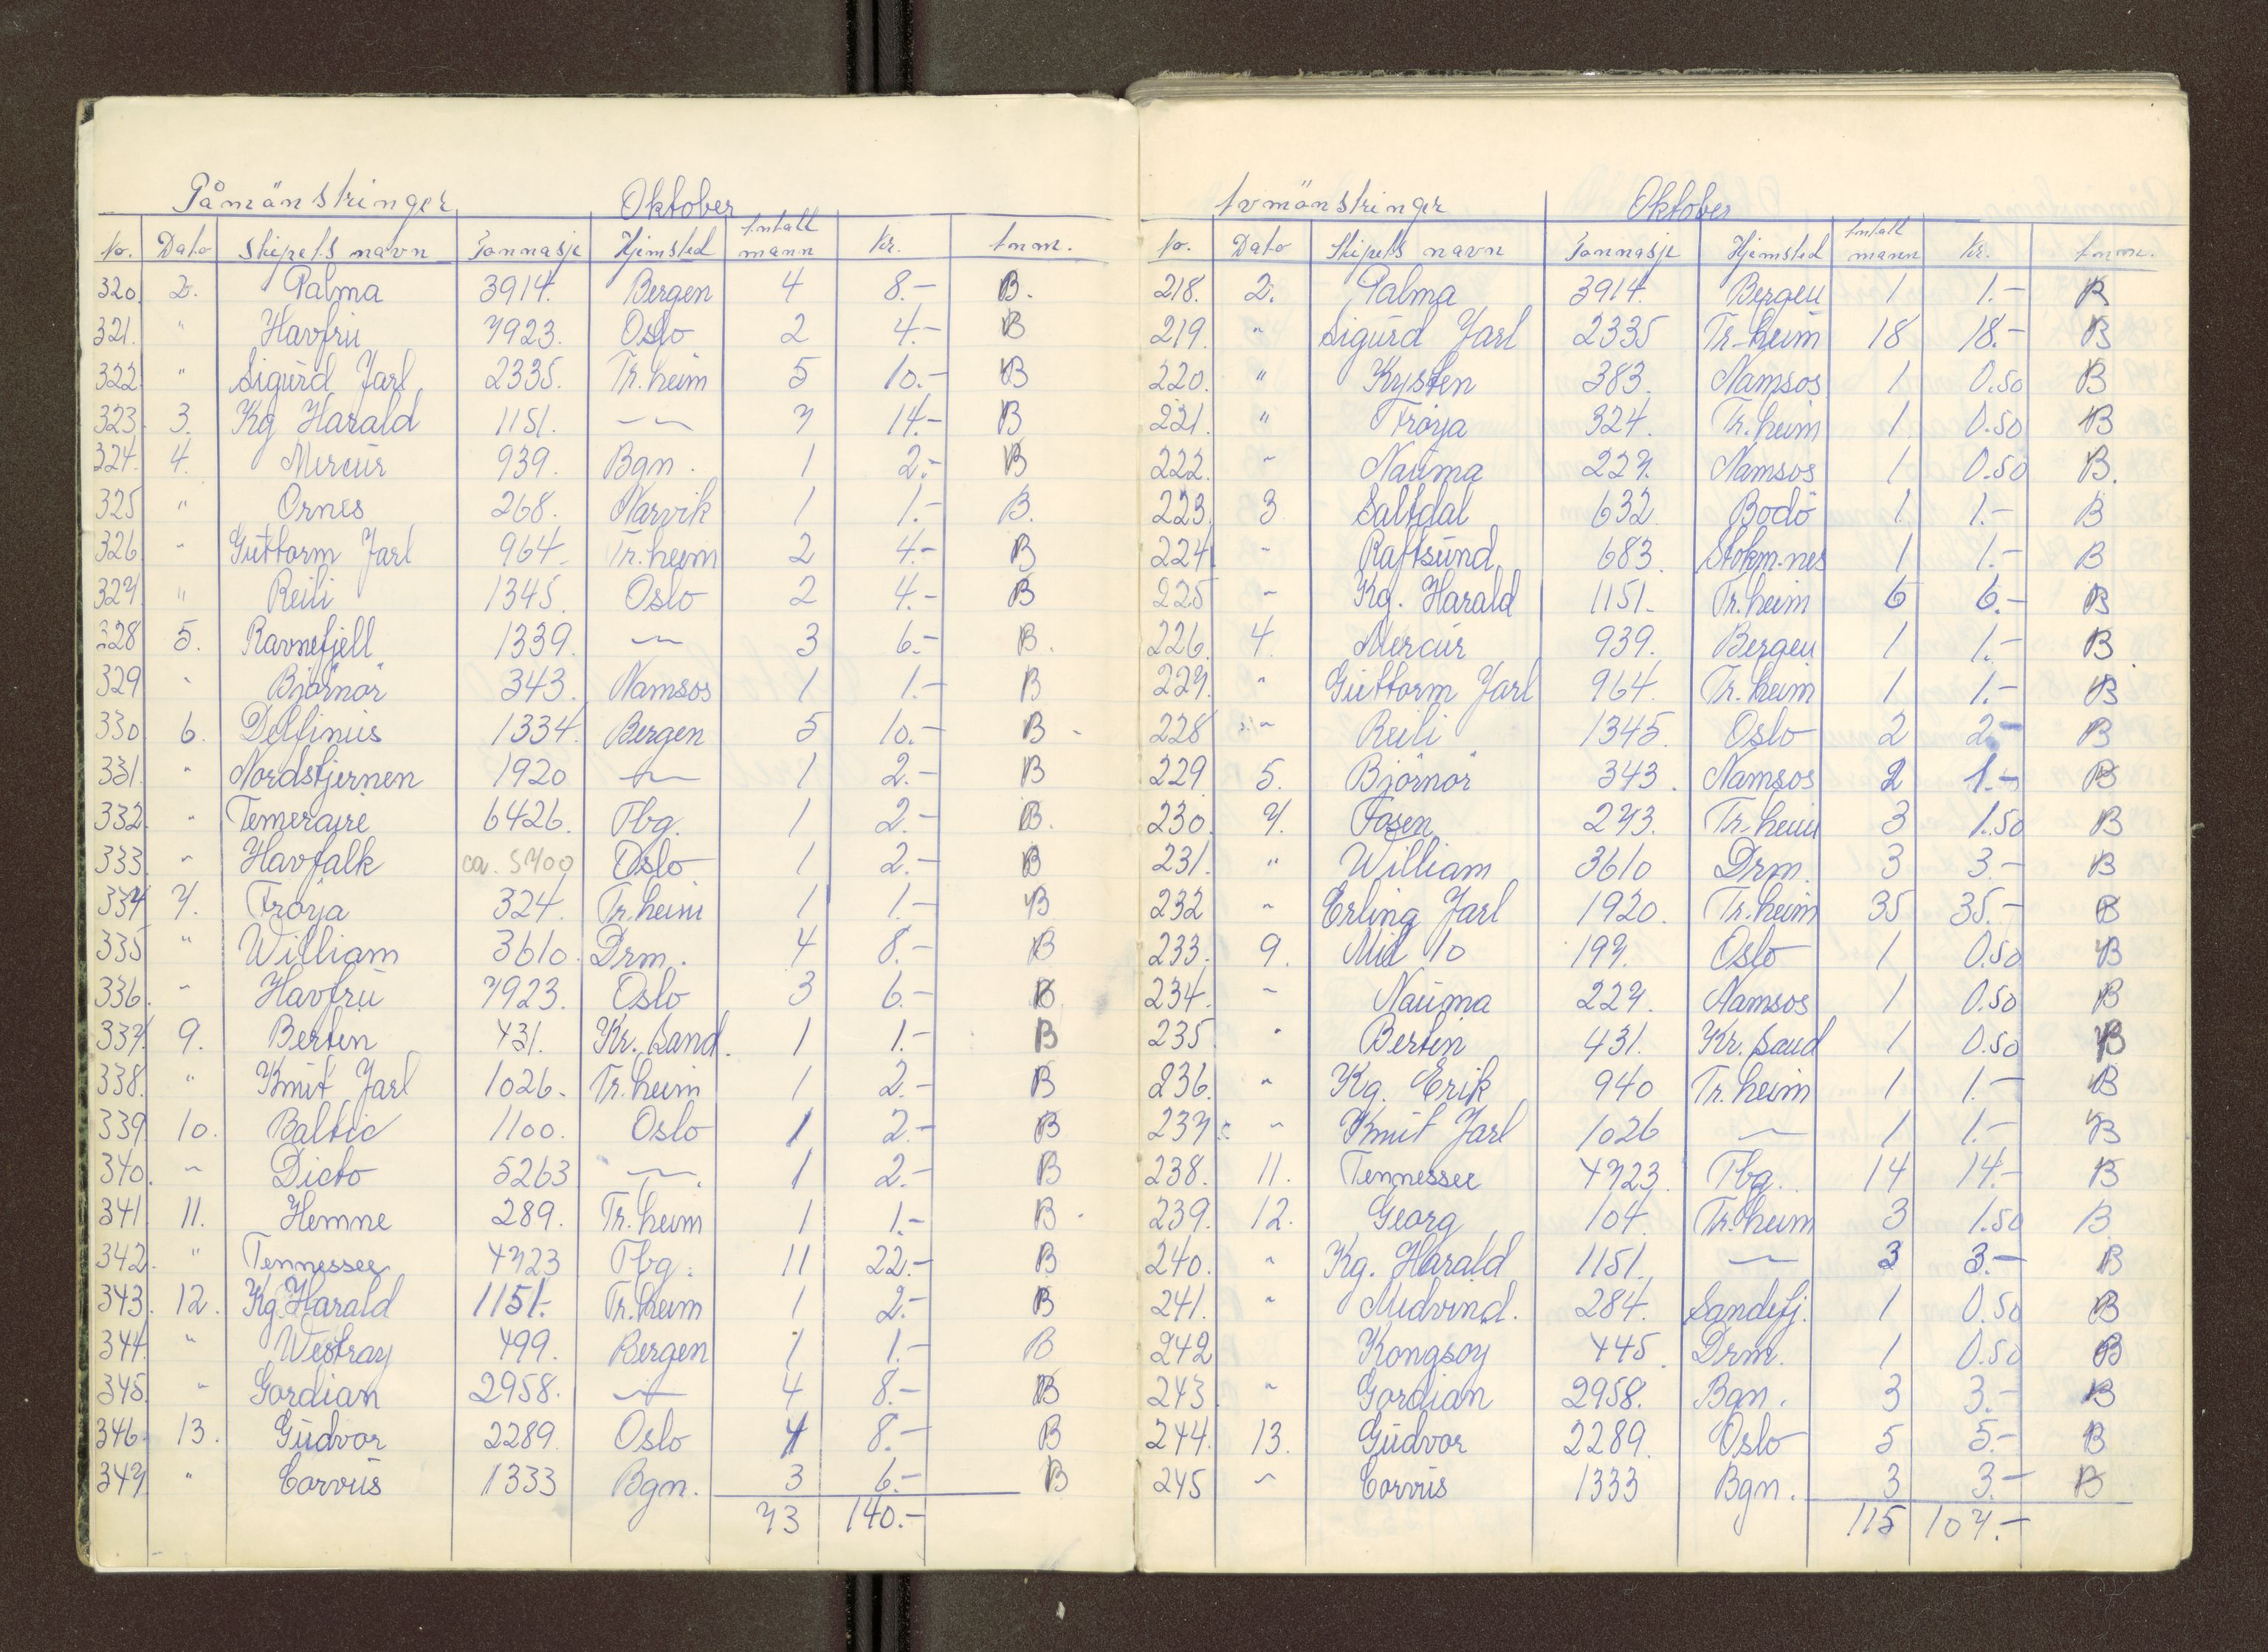 Påmönstringer Oktober
No. Dato Skipets navn Tonnasje Hjemsted Antall mann Kr. Anm.
320. 2. Palma 3914. Bergen 4 8.- B.
321. " Havfru 7923. Oslo 2 4.- B
322 " Sigurd Jarl 2335. Tr.heim 5 10.- B
323 3. Kg Harald 1151. —"— 7 14.- B
324. 4. Mercur 939. Bgn. 1 2.- B
325 " Ornes 268. Narvik 1 1.- B.
326 " Guttorm Jarl 964. Tr.heim 2 4.- B
327. " Reili 1345. Oslo 2 4.- B
328 5. Ravnefjell 1339. —"— 3 6.- B.
329 " Björnör 343. Namsos 1 1.- B
330 6. Delfinus 1334. Bergen 5 10.- B
331. " Nordstjernen 1920 —"— 1 2.- B
332. " Temeraire 6426. Tbg. 1 2.- B.
333. " Havfalk ca. 5700 Oslo 1 2.- B
334 7. Tröja 324. Tr.heim 1 1.- B
335 " William 3610. Drm. 4 8.- B
336. " Havfru 7923. Oslo 3 6.- B.
337. 9. Berten 431. Kr.sand. 1 1.- B
338. " Knut Jarl 1026. Tr.heim 1 2.- B
339 10. Baltic 1100. Oslo 1 2.- B
340. " Dicto 5263 —"— 1 2.- B
341 11. Hemne 289. Tr.heim 1 1.- B
342. " Tennessee 4723 Tbg. 11 22.- B
343. 12. Kg. Harald 1151. Tr.heim 1 2.- B
344. " Westray 499. Bergen 1 1.- B
345. " Gordian 2958. —"— 4 8.- B
346. 13. Gudvor 2289. Oslo 4 8.- B
347 " Corvus 1333 Bgn. 3 6.- B
73 140.-
Avmönstringer Oktober
No. Dato Skipets navn Tonnasje Hjemsted Antall mann Kr. Anm.
218. 2. Palma 3914. Bergen 1 1.- B
219. " Sigurd Jarl 2335 Tr.heim 18 18.- B
220. " Kysten 383. Namsos 1 0.50 B
221. " Tröja 324. Tr.heim 1 0.50 B
222. " Nauma 227. Namsos 1 0.50 B.
223. 3 Saltdal 632. Bodö 1 1.- B
224 " Raftsund 683. Stokm.nes 1 1.- B
225 " Kg. Harald 1151. Tr.heim 6 6.- B
226. 4. Mercur 939. Bergen 1 1.- B
227. " Guttorm Jarl 964. Tr.heim 1 1.- B
228 " Reili 1345. Oslo 2 2.- B
229 5. Björnör 343. Namsos 2 1.- B
230. 7. Fosen 273. Tr.heim 3 1.50 B
231. " William 3610 Drm. 3 3.- B
232 " Erling Jarl 1920. Tr.heim 35 35.- B
233. 9. Mil 10 197. Oslo 1 0.50 B
234. " Nauma 227. Namsos 1 0.50 B
235. " Berten 431. Kr.sand 1 0.50 B
236. " Kg. Erik 940 Tr.heim 1 1.- B
237. " Knut Jarl 1026 —"— 1 1.- B
238. 11. Tennessee 4723. Tbg. 14 14.- B
239. 12. Georg 104. Tr.heim 3 1.50 B
240. " Kg. Harald 1151. —"— 3 3.- B
241. " Midvind. 284. Sandefj. 1 0.50 B
242 Kongsoy 445. Drm. 1 0.50 B
243 " Gordian 2958. Bgn. 3 3.- B
244. 13. Gudvor 2289. Oslo 5 5.- B
245 " Corvus 1333 Bgn. 3 3.- B
115 107.-